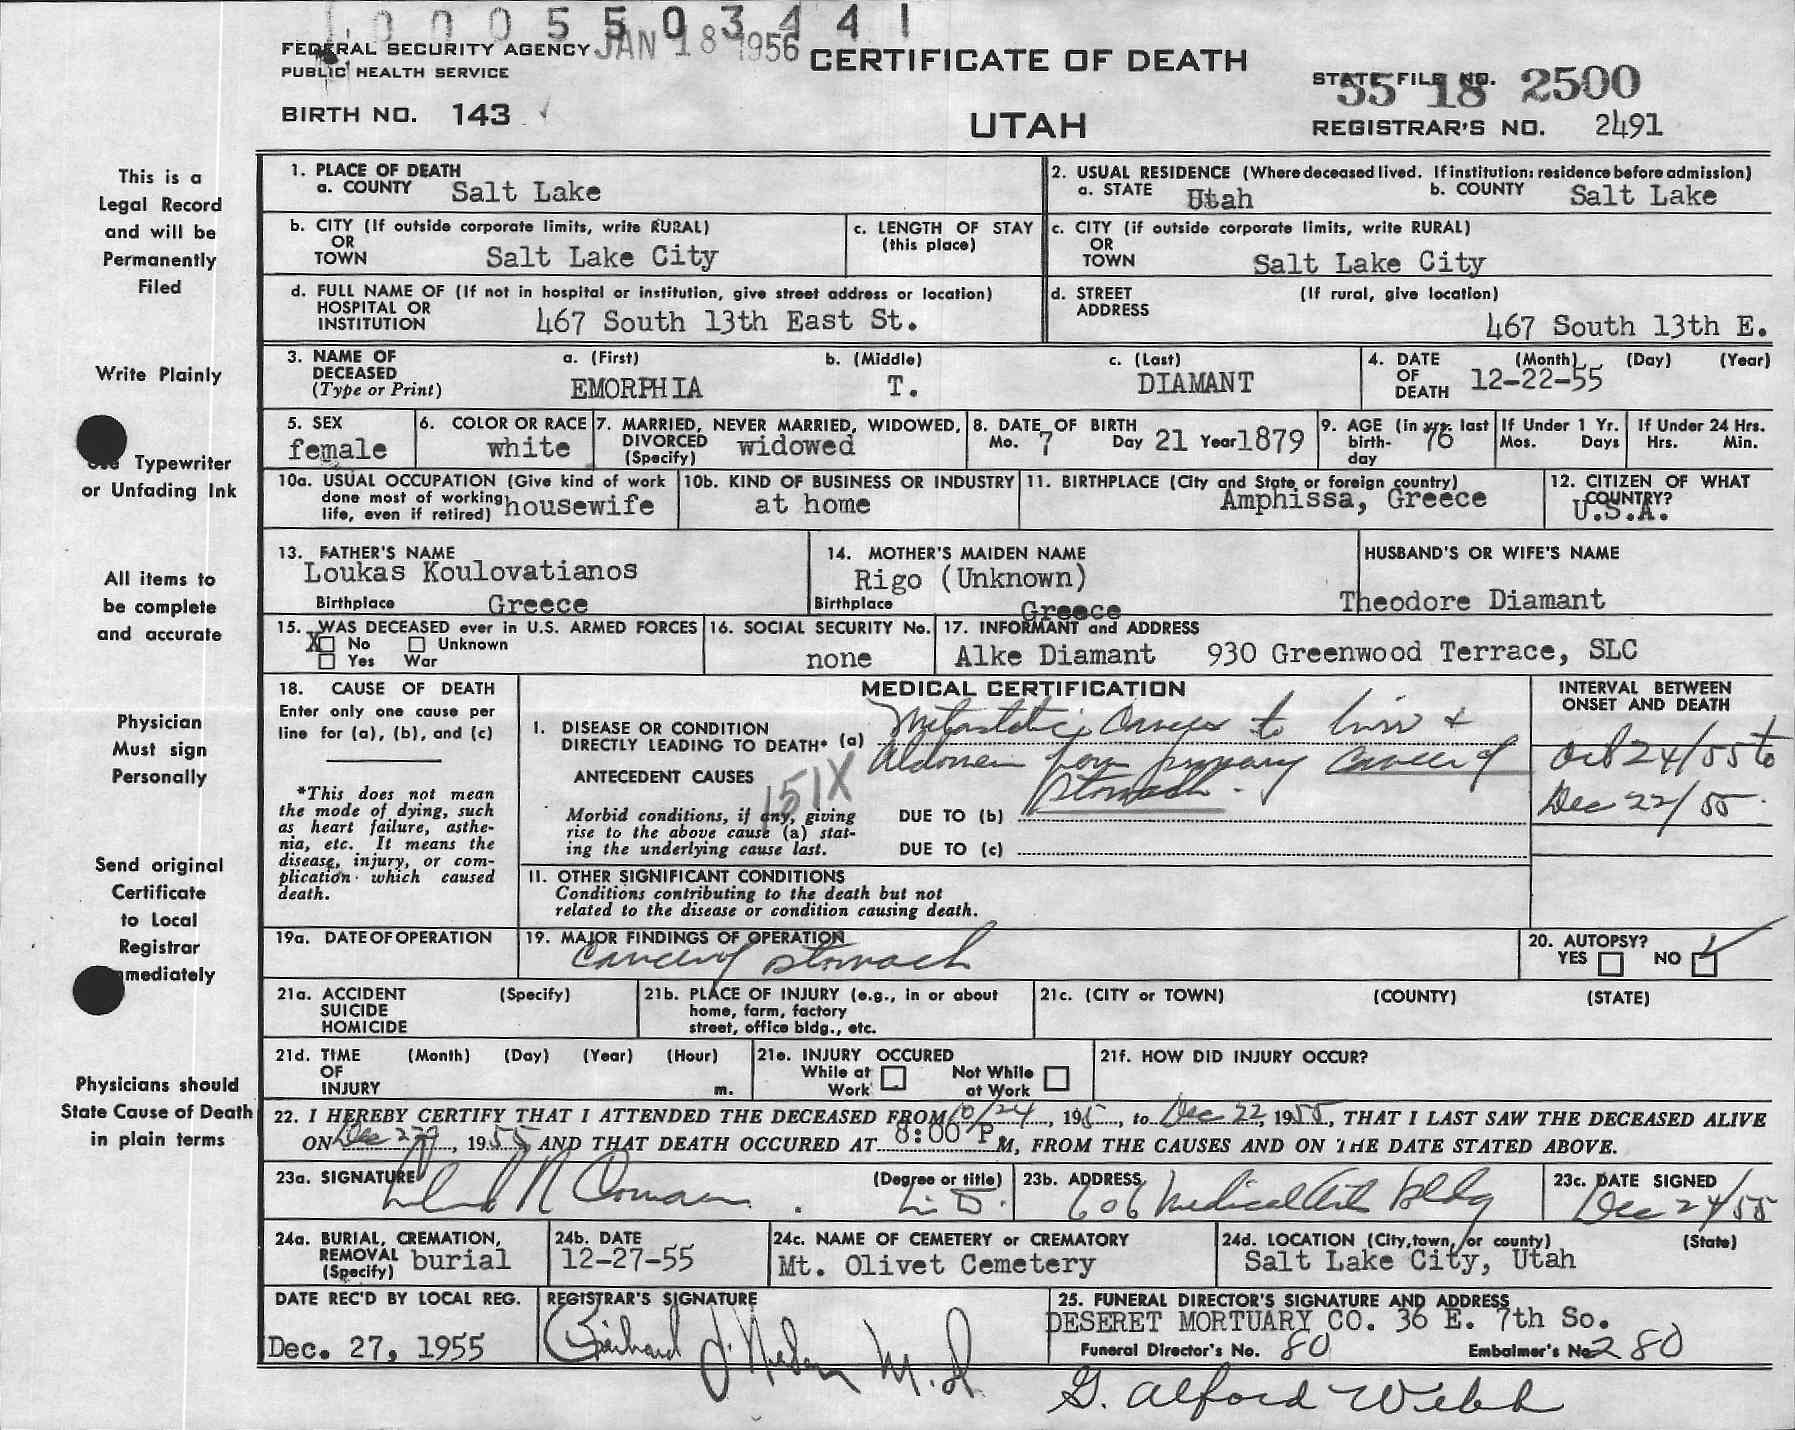 1 0 0 0 5 5 0 3 4 4 1
FEDERAL SECURITY AGENCY JAN 18 1956 CERTIFICATE OF DEATH
PUBLIC HEALTH SERVICE
STATE FILE NO. 55 18 2500
BIRTH NO. 143
UTAH
REGISTRAR'S NO. 2491
This is a
Legal Record
and will be
Permanently
Filed
Write Plainly
Typewriter
or Unfading Ink
All items to
be complete
and accurate
Physician
Must sign
Personally
Send original
Certificate
to Local
Registrar
mmediately
Physicians should
State Cause of Death
in plain terms
1. PLACE OF DEATH
a. COUNTY Salt Lake
2. USUAL RESIDENCE (Where deceased lived. If institution: residence before admission)
a. STATE Utah b. COUNTY Salt Lake
b. CITY (If outside corporate limits, write RURAL)
OR
TOWN Salt Lake City
c. LENGTH OF STAY
(this place)
c. CITY (if outside corporate limits, write RURAL)
OR
TOWN Salt Lake City
d. FULL NAME OF (If not in hospital or institution, give street address or location)
HOSPITAL OR
INSTITUTION 467 South 13th East St.
d. STREET (If rural, give location)
ADDRESS
467 South 13th E.
3. NAME OF a. (First) b. (Middle) c. (Last)
DECEASED
(Type or Print) EMORPHIA T. DIAMANT
4. DATE (Month) (Day) (Year)
OF
DEATH 12-22-55
5. SEX
female
6. COLOR OR RACE
white
7. MARRIED, NEVER MARRIED, WIDOWED,
DIVORCED widowed
(Specify)
8. DATE OF BIRTH
Mo. 7 Day 21 Year 1879
9. AGE (in yrs. last
birth- 76
day
If Under 1 Yr.
Mos. Days
If Under 24 Hrs.
Hrs. Min.
10a. USUAL OCCUPATION (Give kind of work
done most of working
life, even if retired) housewife
10b. KIND OF BUSINESS OR INDUSTRY
at home
11. BIRTHPLACE (City and State or foreign country)
Amphissa, Greece
12. CITIZEN OF WHAT
COUNTRY?
U.S.A.
13. FATHER'S NAME
Loukas Koulovatianos
Birthplace Greece
14. MOTHER'S MAIDEN NAME
Rigo (Unknown)
Birthplace Greece
HUSBAND'S OR WIFE'S NAME
Theodore Diamant
15. WAS DECEASED ever in U.S. ARMED FORCES
X No Unknown
Yes War
16. SOCIAL SECURITY No.
none
17. INFORMANT and ADDRESS
Alke Diamant 930 Greenwood Terrace, SLC
18. CAUSE OF DEATH
Enter only one cause per
line for (a), (b), and (c)
*This does not mean
the mode of dying, such
as heart failure, asthe-
nia, etc. It means the
disease, injury, or com-
plication which caused
death.
MEDICAL CERTIFICATION
I. DISEASE OR CONDITION
DIRECTLY LEADING TO DEATH* (a) Metastatic Cancer to liver &
Abdomen from primary cancer of
stomach.
ANTECEDENT CAUSES 151X
Morbid conditions, if any, giving
rise to the above cause (a) stat-
ing the underlying cause last.
DUE TO (b)
DUE TO (c)
INTERVAL BETWEEN
ONSET AND DEATH
Oct 24/55 to
Dec 22/55.
II. OTHER SIGNIFICANT CONDITIONS
Conditions contributing to the death but not
related to the disease or condition causing death.
19a. DATE OF OPERATION
19. MAJOR FINDINGS OF OPERATION
Cancer of stomach
20. AUTOPSY?
YES NO ✓
21a. ACCIDENT (Specify)
SUICIDE
HOMICIDE
21b. PLACE OF INJURY (e.g., in or about
home, farm, factory
street, office bldg., etc.
21c. (CITY or TOWN) (COUNTY) (STATE)
21d. TIME (Month) (Day) (Year) (Hour)
OF
INJURY m.
21e. INJURY OCCURED
While at Not While
Work at Work
21f. HOW DID INJURY OCCUR?
22. I HEREBY CERTIFY THAT I ATTENDED THE DECEASED FROM 10/24, 195, to Dec 22, 1955, THAT I LAST SAW THE DECEASED ALIVE
ON Dec 22, 1955 AND THAT DEATH OCCURED AT 8:00 P M, FROM THE CAUSES AND ON THE DATE STATED ABOVE.
23a. SIGNATURE (Degree or title)
M.D.
23b. ADDRESS
606 Medical Arts Bldg
23c. DATE SIGNED
Dec 24/55
24a. BURIAL, CREMATION,
REMOVAL burial
(Specify)
24b. DATE
12-27-55
24c. NAME OF CEMETERY or CREMATORY
Mt. Olivet Cemetery
24d. LOCATION (City, town, or county) (State)
Salt Lake City, Utah
DATE REC'D BY LOCAL REG.
Dec. 27, 1955
REGISTRAR'S SIGNATURE
M.D.
25. FUNERAL DIRECTOR'S SIGNATURE AND ADDRESS
DESERET MORTUARY CO. 36 E. 7th So.
Funeral Director's No. 80 Embalmer's No 280
G. Alford Webb